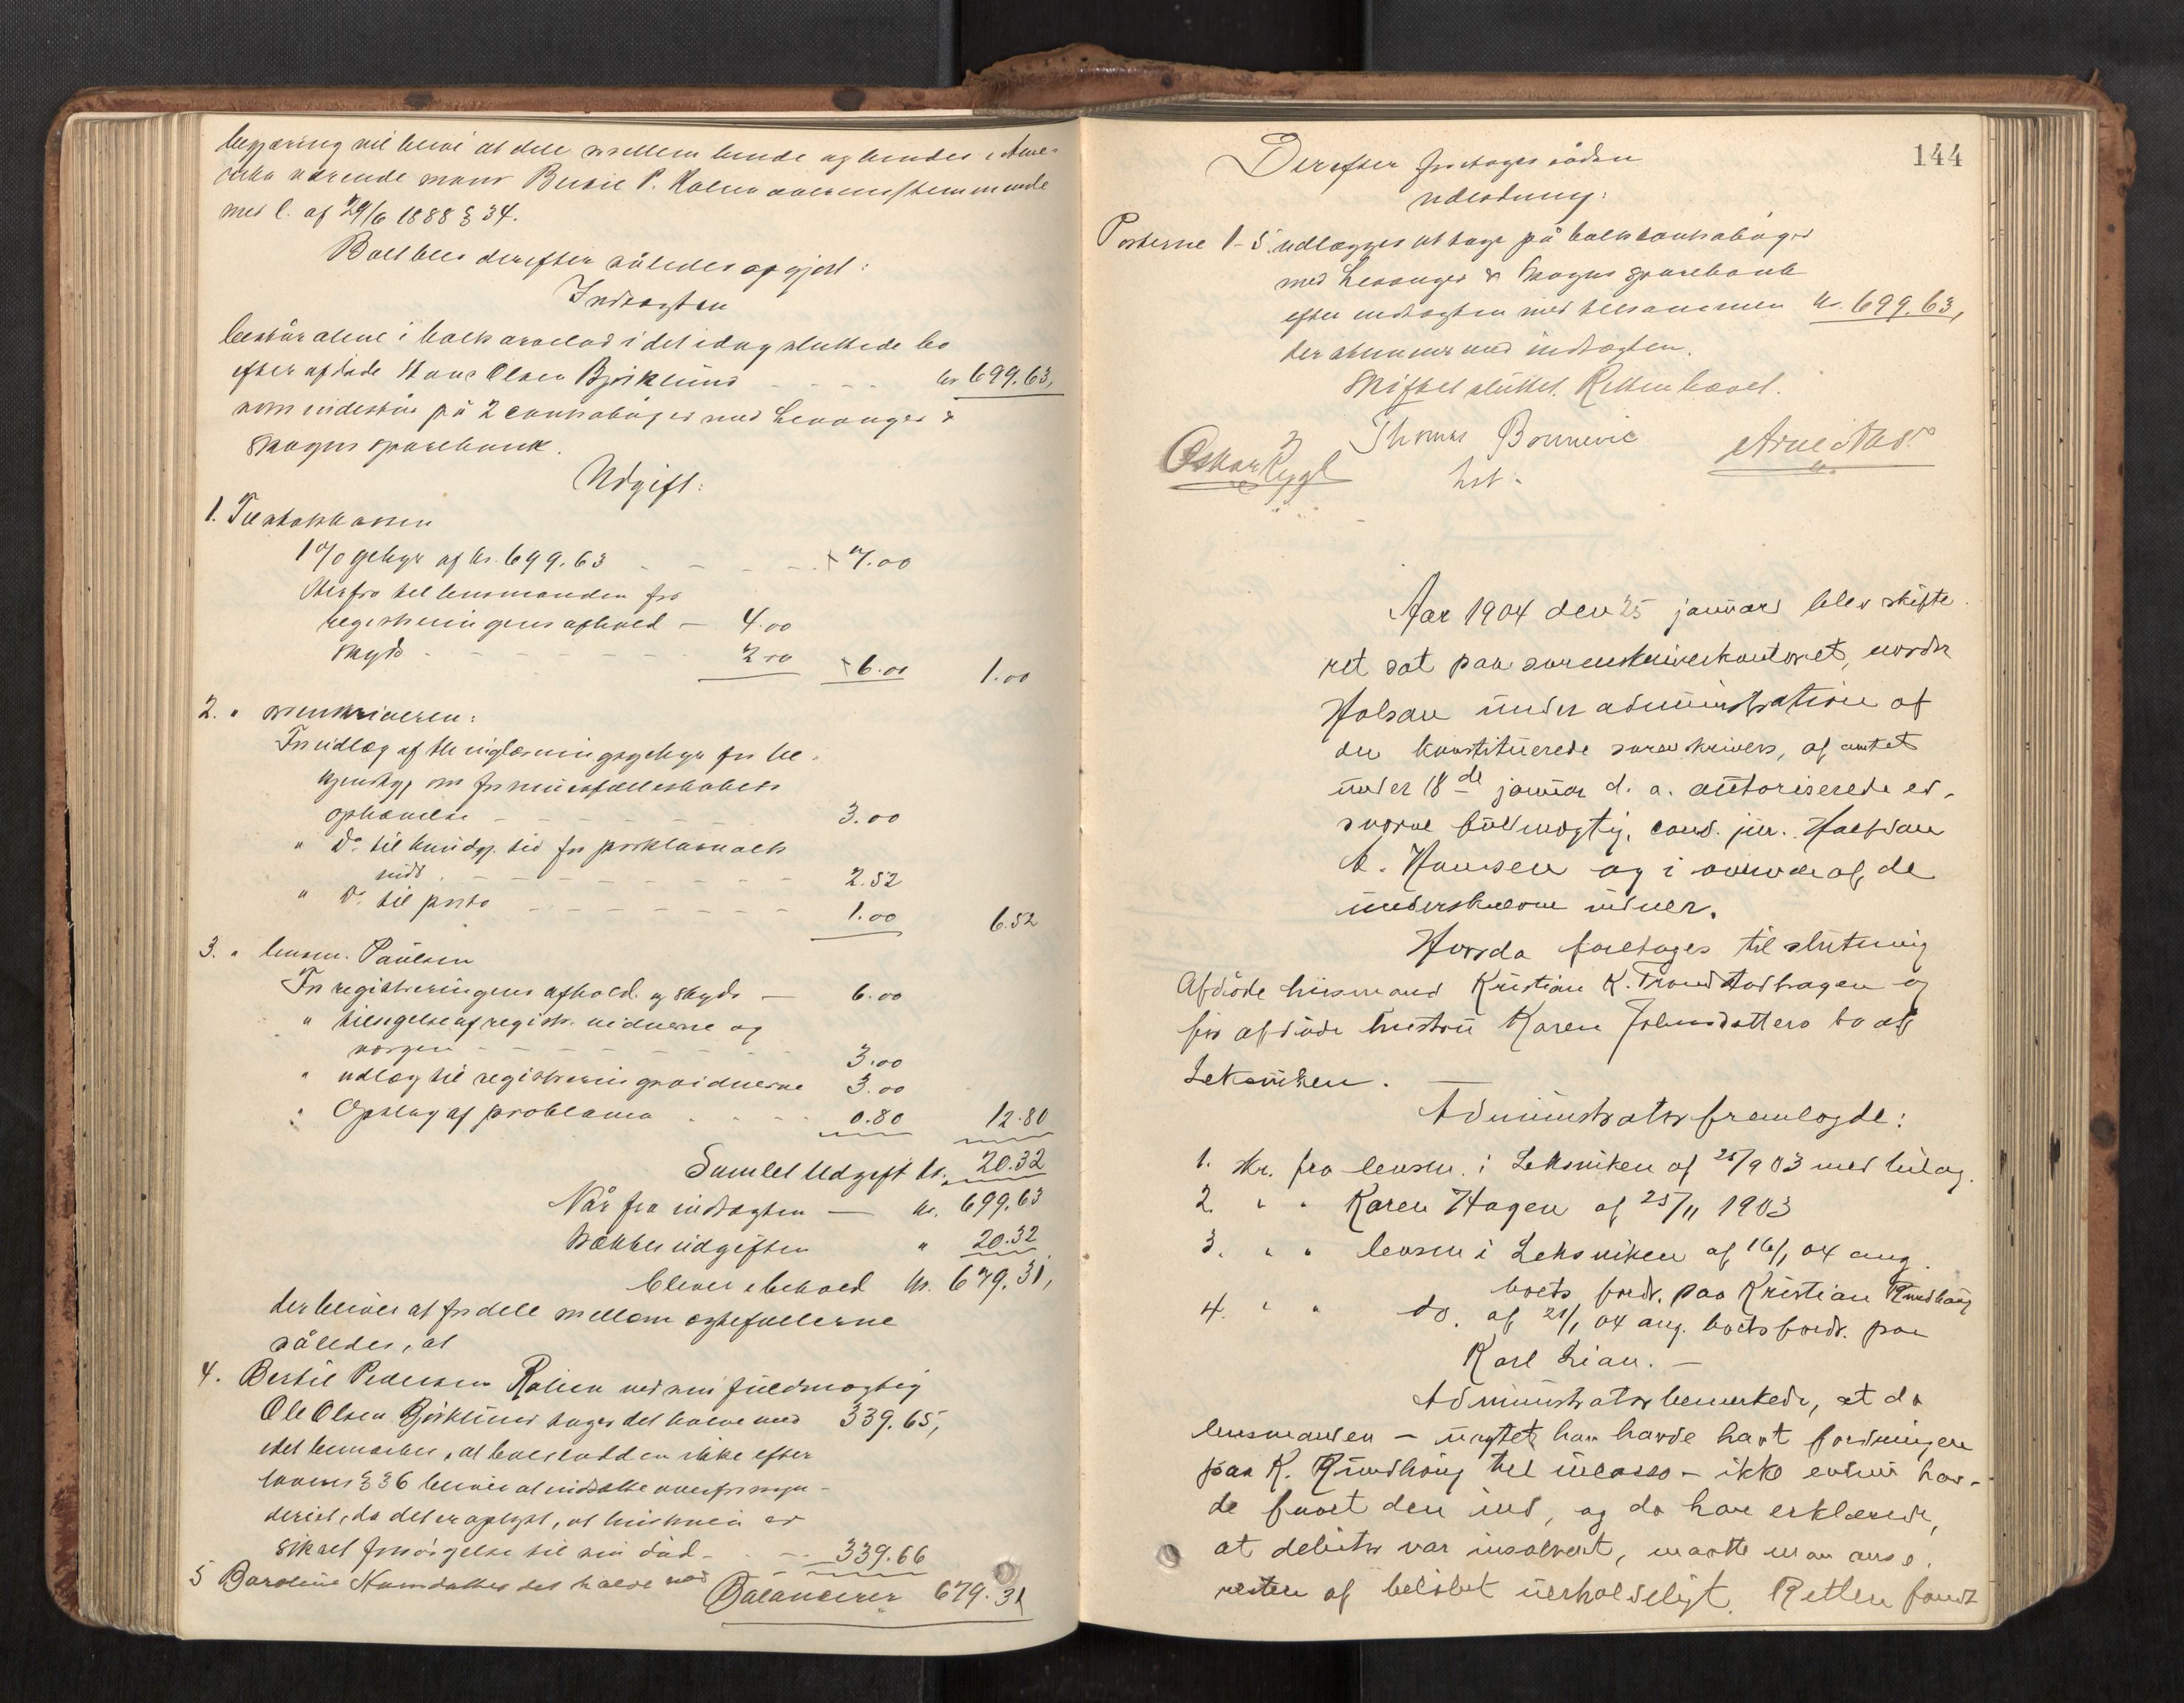 begjæring vil blive at dele mellem hende og hendes i Ame-
rika værende mand P. overensstemmende
med l. af 29/6 1888 § 34.
Boet blev derefter således opgjort:
Indtægten
består alene i boets arvelod i det idag sluttede bo
efter afdøde Hans Olsen Bjørklund kr 699.63,
som indestår på 2 contrabøger med Levanger &
Skogns sparebank.
Udgift:
1. Til statskassen
1 % gebyr af kr. 699.63 7.00
Herfra til lensmanden for
registreringens afhold 4.00
skyds 2.00 6.00 1.00
2. " sorenskriveren:
For udlæg af thinglæsningsgebyr for be-
kjendtg. om formuesfællesskabets
ophævelse 3.00
" Do til kundg. tid for proklamaets
indr. 2.52
" Do til porto 1.00 6.52
3. " lensm. Paulsen
For registreringens afhold. og skyds 6.00
" tilsigelse af registr. vidnerne og
værgen 3.00
" udlæg til registreringsvidnerne 3.00
" Opslag af proklama 0.80 12.80
Samlet Udgift kr. 20.32
Når fra indtægten kr. 699.63
trækkes udgiften " 20.32
bliver i behold kr. 679.31,
der bliver at fordele mellem ægtefællerne
således, at
4. Pedersen ved sin fuldmægtig
Ole Olsen Bjørklund tager det halve med 339.65,
idet bemærkes, at boeslodden ikke efter
lovens § 36 bliver at indsætte overformyn-
deriet, da det er oplyst, at hustruen er
sikret forsørgelse til sin død.
5 det halve med 339.66
Balancerer 679.31
144
Derefter foretoges sådan
udlodning:
Posterne 1-5 udlægges at tage på boets contrabøger
med Levanger & Skogns sparebank
efter indtægten med tilsammen kr. 699.63,
der stemmer med indtægten.
Skiftet sluttet. Retten hævet.
Thomas Bonnevie
Oskar
Arne
hst.
Aar 1904 den 25 januar blev skifte-
ret sat paa sorenskriverkontoret, nordre
Holsan under administration af
den konstituerede sorenskriver, af amtet
under 18de januar d. a. autoriserede ed-
svorne fuldmægtig, cand. jur. Halfdan
Hansen og i overvær af de
underskrevne vidner.
Hvorda foretoges til slutning
Afdøde husmand Kristian K. Trondstadhagen og
før afdøde hustru Karen Johnsdatters bo af
Leksviken.
Administrator fremlagde:
1. skr. fra lensm. i Leksviken af 25/9 03 med bilag.
2. " " Karen Hagen af 25/11 1903
3. " " lensm i Leksviken af 16/1 04 ang.
boets fordr. paa Kristian Rundhaug
4. " " do. af 21/1 04 ang. boets fordr. paa
Karl Lian. —
Administrator bemerkede, at da
lensmanden – uagtet han havde havt fordringen
paa K. Rundhaug til incasso – ikke endnu hav-
de faaet den ind, og da han erklærede,
at debitor var insolvent, maatte man anse
resten af beløbet uerholdeligt. Retten fandt